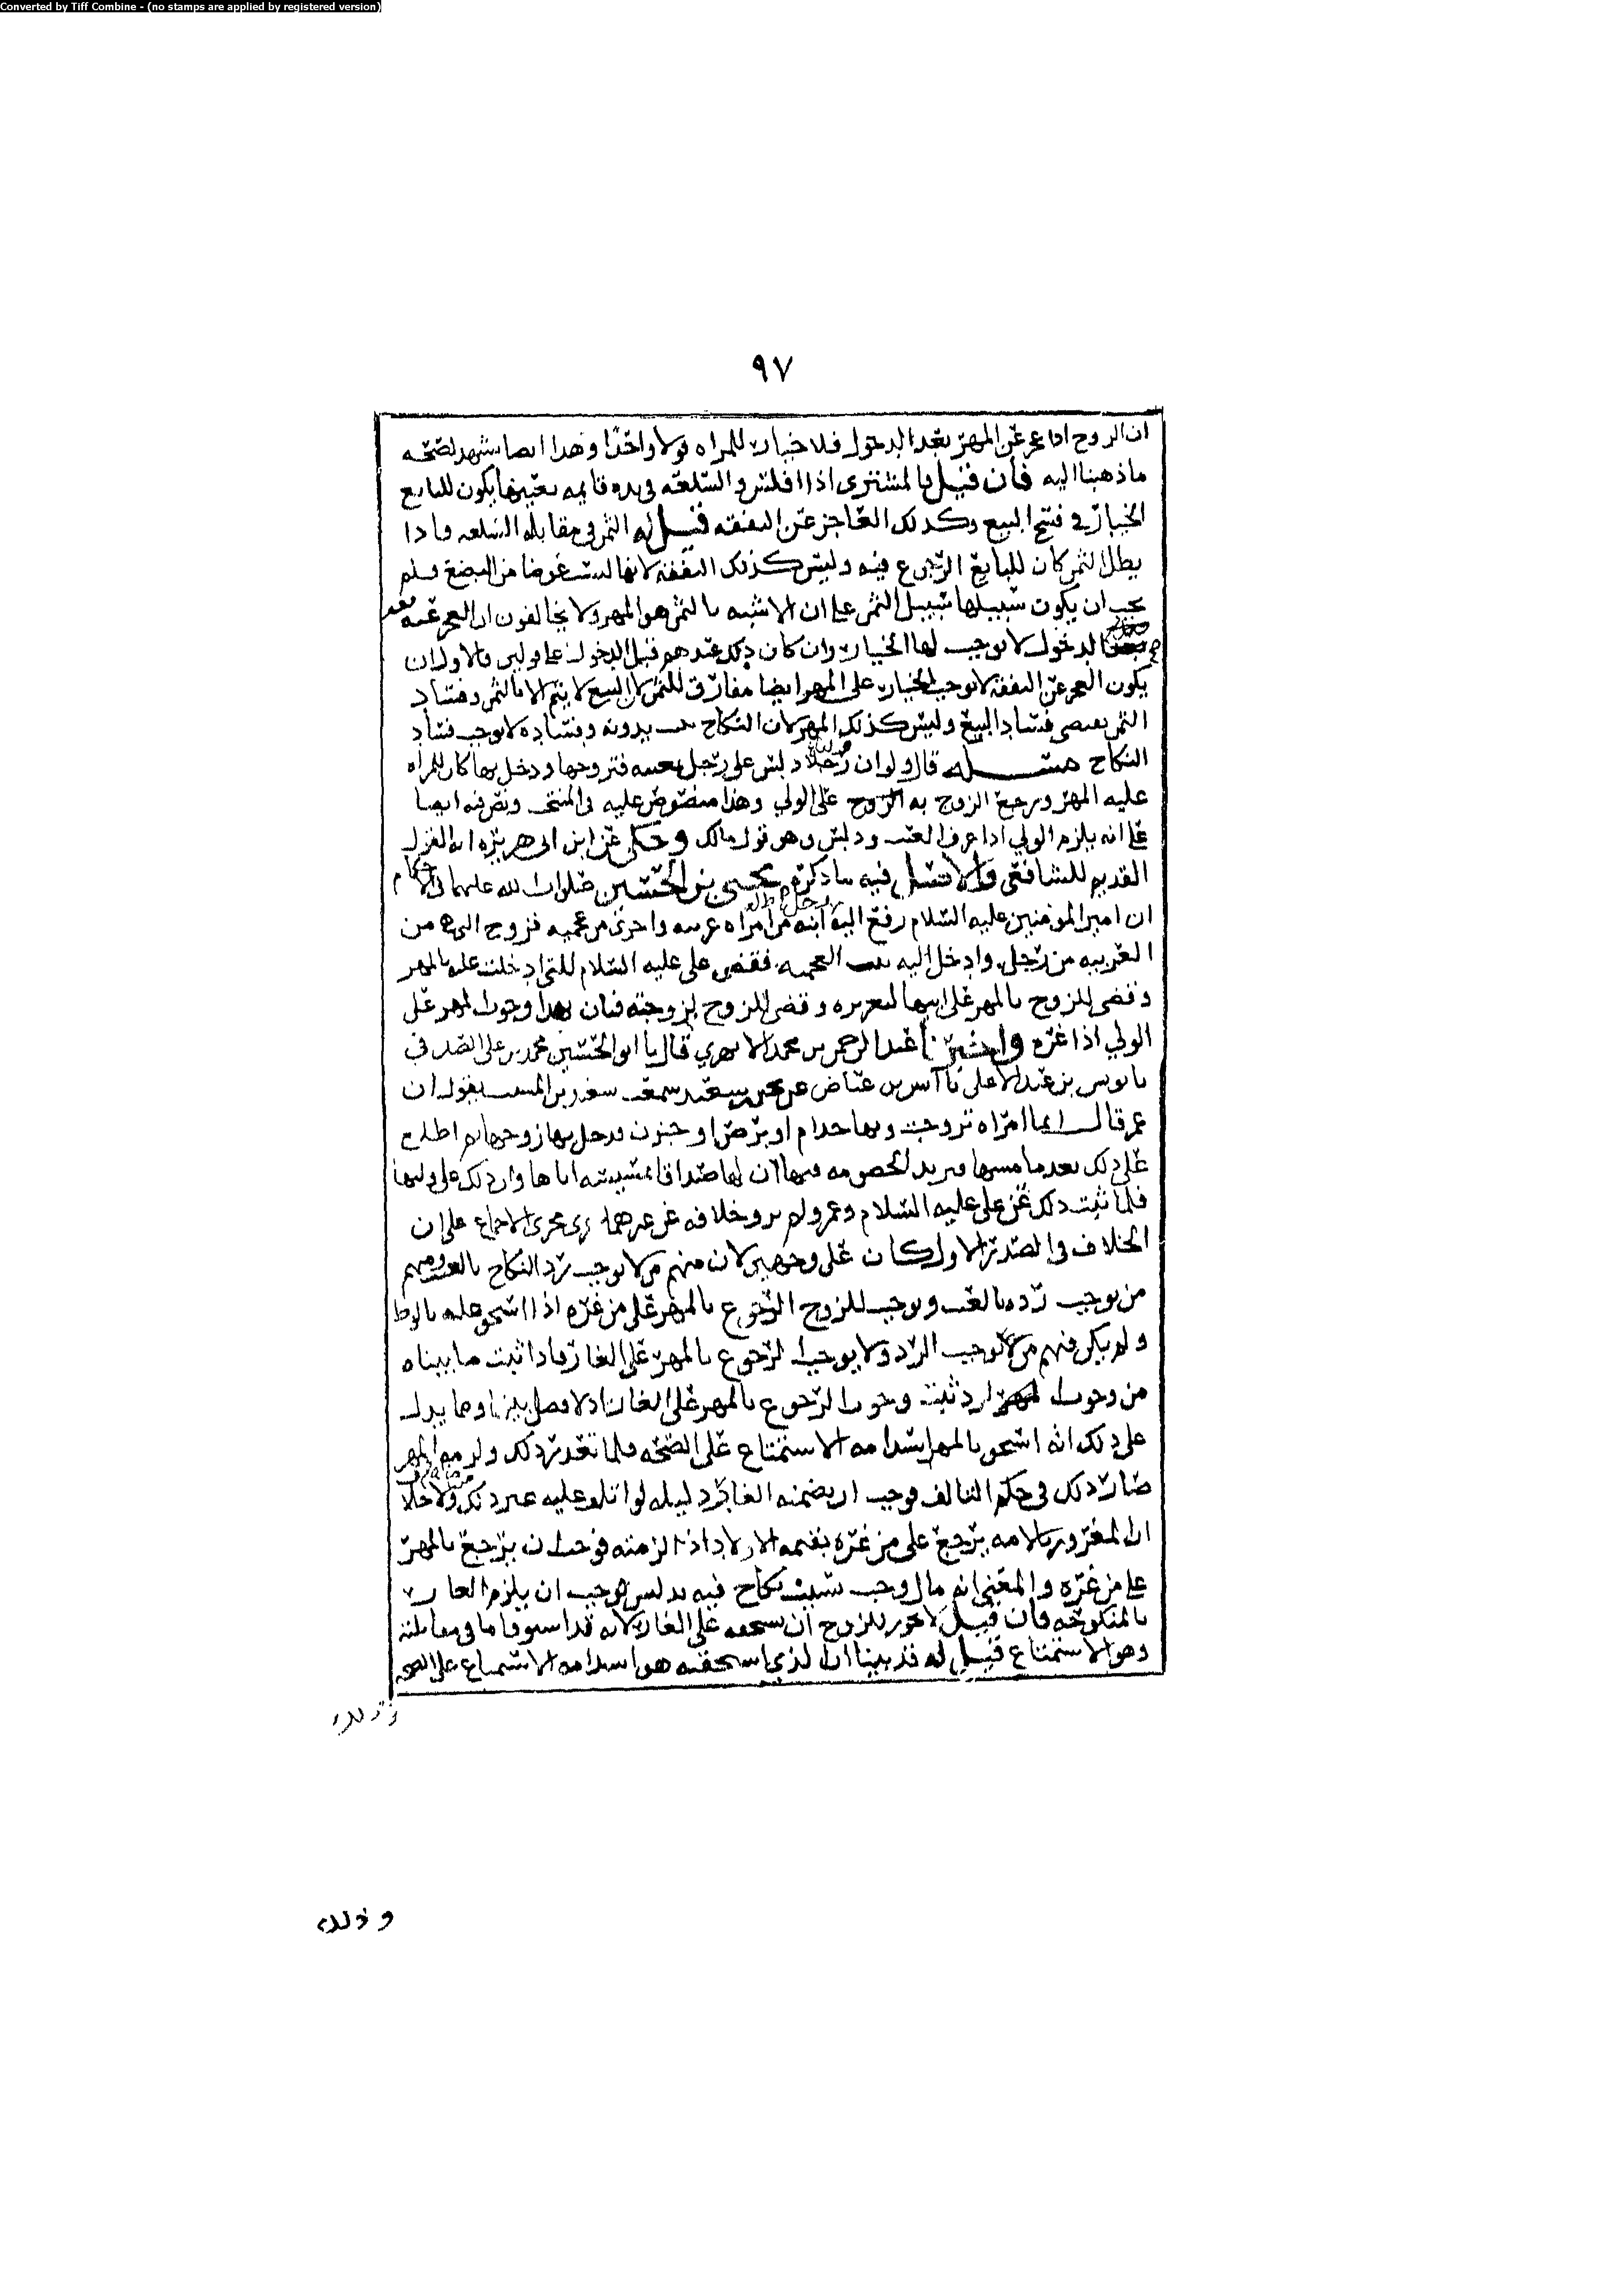 Converted by Tiff Combine - (no stamps are applied by registered version)
٩٧
ان الزوج اذا عجز عن المهر بعد الدخول فلا خيار للمراه قولا واحدا وهذا ايضا يشهد لصحه
ما ذهبنا اليه فان قيل المشتري اذا افلس والسلعه في يده قايمه بعينها يكون للبايع
الخيار في فسخ البيع وكذلك العاجز عن النفقه قيل له الثمن في مقابله السلعه فاذا
بطل الثمن كان للبايع الرجوع فيه وليس كذلك النفقه لانها ليست عوضا من البضع فلم
يجب ان يكون سبيلها سبيل الثمن على ان الاشبه بالثمن هو المهر ولا يخالفون ان العجز عنه بعد
الدخول لا يوجب لها الخيار وان كان ذلك عندهم قبل الدخول على قولين فالاولى ان
يكون العجز عن النفقه لا يوجب الخيار على المهر ايضا مفارق للثمن لان البيع لا يتم الا بالثمن وفساد
الثمن يقتضي فساد البيع وليس كذلك المهر لان النكاح يثبت بدونه وفساده لا يوجب فساد
النكاح مسئله قال ولو ان رجلا دلس على رجل بمعيبه فتزوجها ودخل بها كان للمراه
عليه المهر ويرجع الزوج به على الولي وهذا منصوص عليه في المنتخب ونص فيه ايضا
على انه يلزم الولي اذا عرف العيب ودلس وهو قول مالك وحكي عن ابن ابي هريره انه القول
القديم للشافعي والاصل فيه ما ذكره يحيى بن الحسين صلوات الله عليهما في الاحكام
ان امير المؤمنين عليه السلام رفع اليه رجل له ابنه من امراه عربيه واخرى من عجميه فزوج التي هي من
العربيه من رجل وادخل اليه بنت العجميه فقضى علي عليه السلام للتي ادخلت عليه بالمهر
وقضى للزوج بالمهر على ابيها لتغريره وقضى للزوج بزوجته فبان بهذا وجوب المهر على
الولي اذا غره واخبرنا عبد الرحمن بن محمد الابهري قال نا ابو الحسين محمد بن علي الصدفي
نا يونس بن عبد الاعلى نا انس بن عياض عن يحيى بن سعيد سمعت سعيد بن المسيب يقول ان
عمر قال ايما امراه تزوجت وبها جذام او برص او جنون فدخل بها زوجها ثم اطلع
على ذلك بعد ما مسها فيريد الخصومه فيها ان لها صداقا بمسيسه اياها وان ذلك على وليها
فلما ثبت ذلك عن علي عليه السلام وعمر ولم يرو خلافه عن غيرهما جرى مجرى الاجماع على ان
الخلاف في الصدر الاول كان على وجهين لان منهم من لا يوجب رد النكاح بالعيب ومنهم
من يوجب رده بالعيب ويوجب للزوج الرجوع بالمهر على من غره اذا استحق عليه بالوطا
ولم يكن فيهم من يوجب الرد ولا يوجب الرجوع بالمهر على الغار فاذا ثبت ما بيناه
من وجوب الرد ثبت وجوب الرجوع بالمهر على الغار اذ لا فصل بينهما ومما يدل
على ذلك انه استحق بالمهر استدامه الاستمتاع على الصحه فلما تعذر ذلك ولزمه المهر
صار ذلك في حكم التالف فوجب ان يضمنه الغار دليله لو اتلف عليه غير ذلك ولا خلاف
ان المغرور بالامه يرجع على من غره بقيمه الاولاد اذا الزمته فوجب ان يرجع بالمهر
على من غره والمعنى انه مال وجب بسبب نكاح فيه تدليس فوجب ان يلزم الغار
بالمنكوحه فان قيل لا يجوز للزوج ان يستحقه على الغار لانه قد استوفا ما في مقابلته
وهو الاستمتاع قيل له قد بينا ان الذي استحقه هو استدامه الاستمتاع على الصحه
وذلك